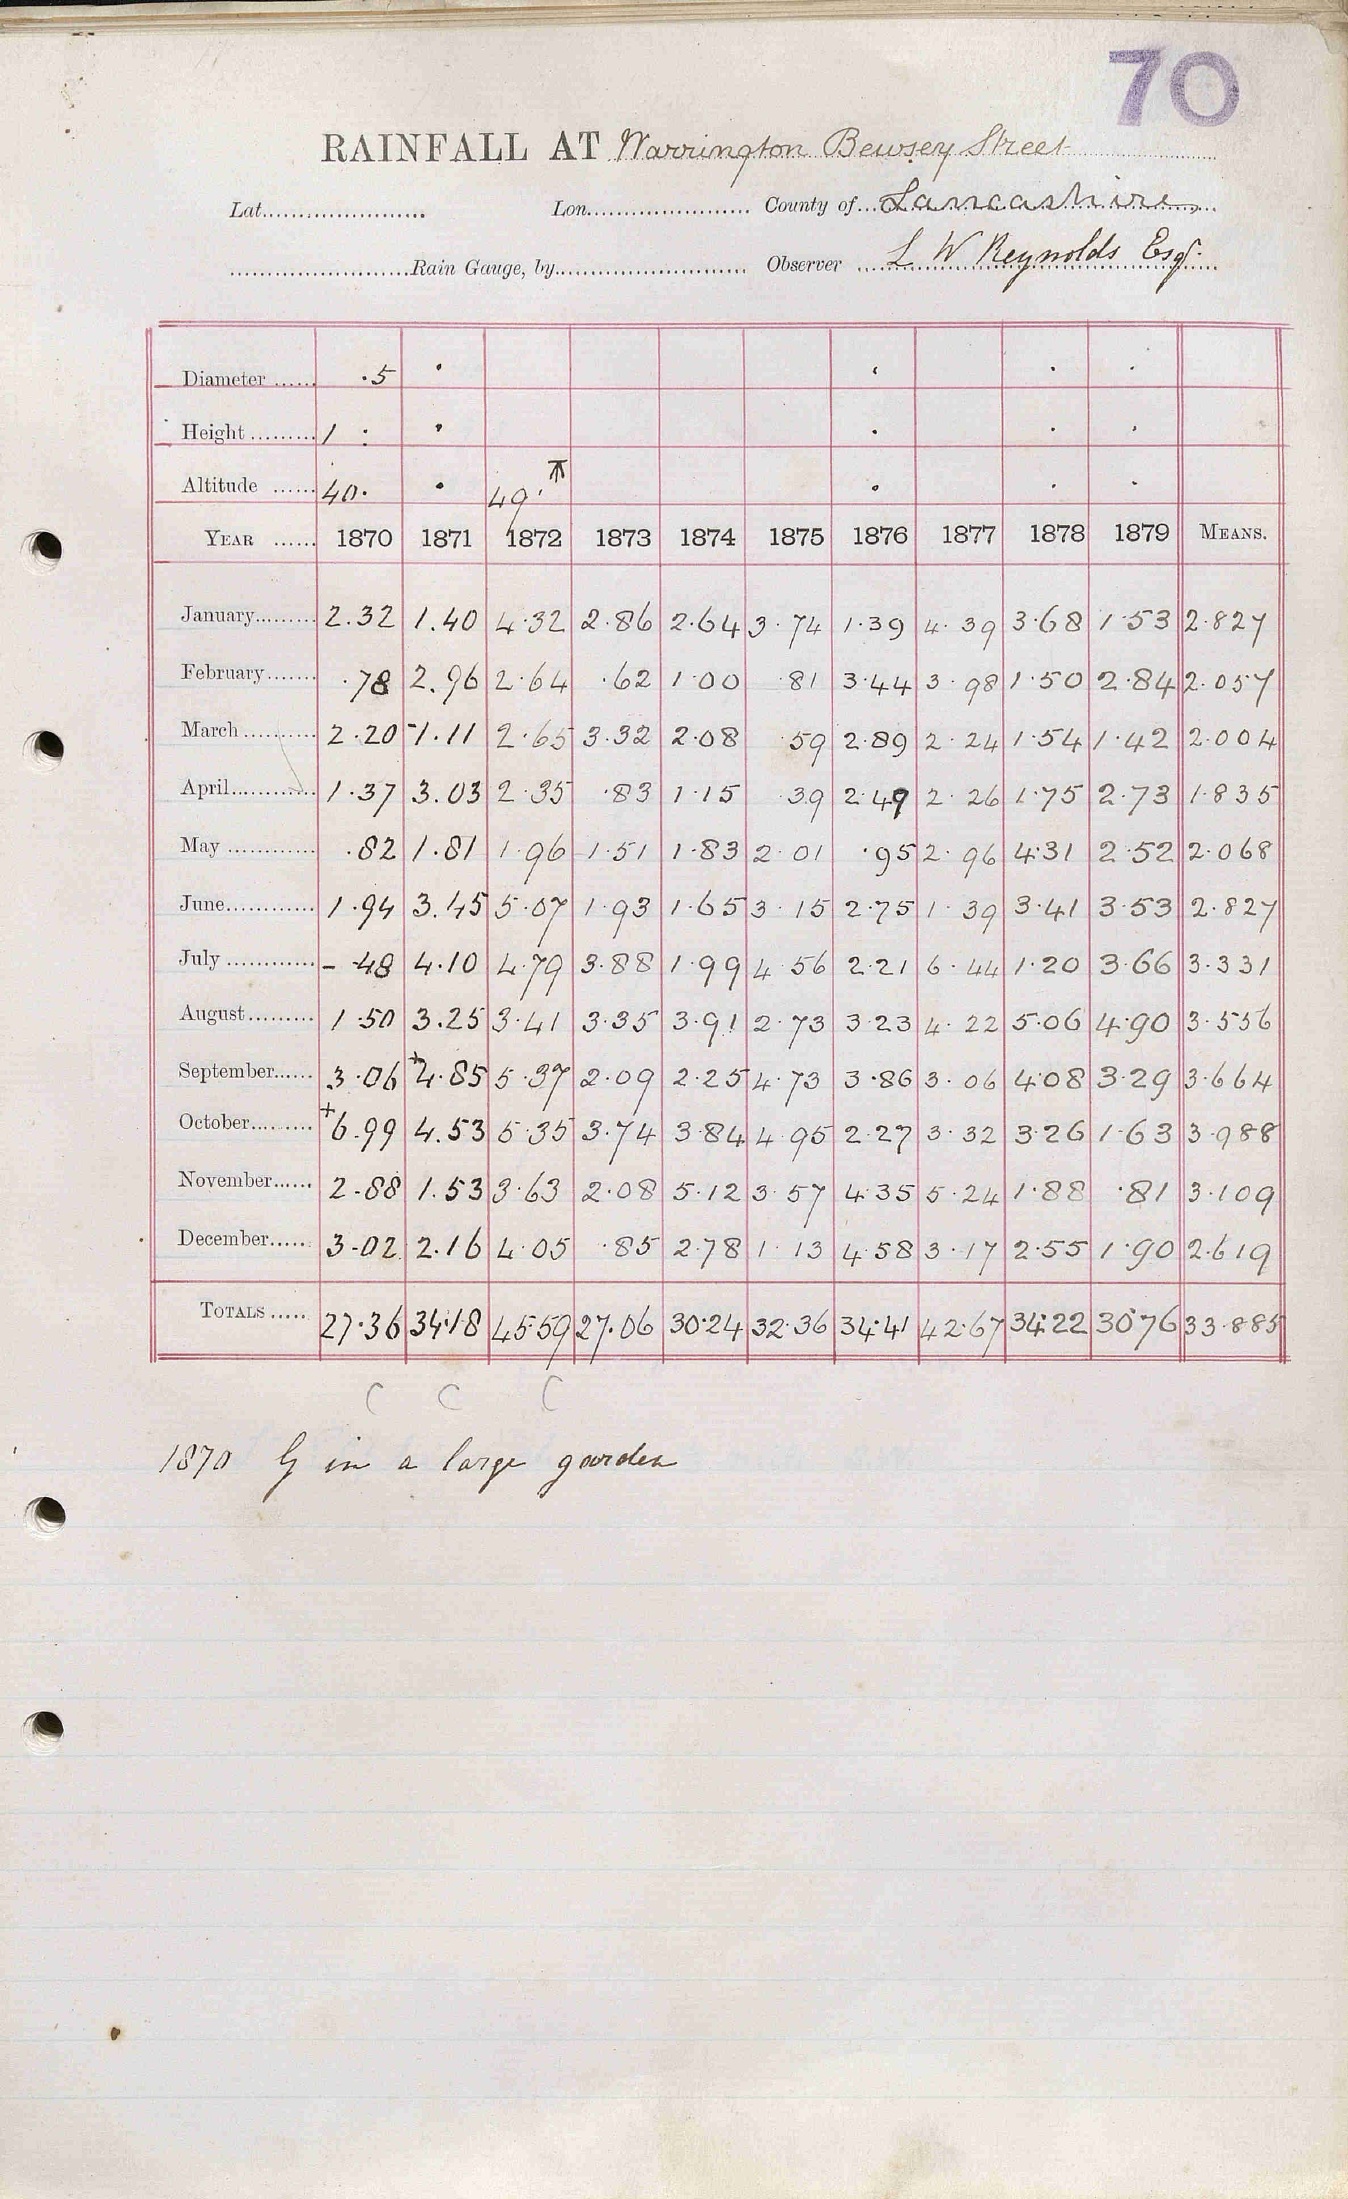 70
RAINFALL AT Warrington Bewsey Street
Lat. Lon. County of Lancashire
Rain Gauge, by Observer L W Reynolds Esqr.
Diameter ·5
Height 1 :
Altitude 40· 49·
YEAR 1870 1871 1872 1873 1874 1875 1876 1877 1878 1879 MEANS.
January 2.32 1.40 4.32 2.86 2.64 3.74 1.39 4.39 3.68 1.53 2.827
February .78 2.96 2.64 .62 1.00 .81 3.44 3.98 1.50 2.84 2.057
March 2.20 -1.11 2.65 3.32 2.08 .59 2.89 2.24 1.54 1.42 2.004
April 1.37 3.03 2.35 .83 1.15 .39 2.49 2.26 1.75 2.73 1.835
May .82 1.81 1.96 1.51 1.83 2.01 .95 2.96 4.31 2.52 2.068
June 1.94 3.45 5.07 1.93 1.65 3.15 2.75 1.39 3.41 3.53 2.827
July - .48 4.10 4.79 3.88 1.99 4.56 2.21 6.44 1.20 3.66 3.331
August 1.50 3.25 3.41 3.35 3.91 2.73 3.23 4.22 5.06 4.90 3.556
September 3.06 +4.85 5.37 2.09 2.25 4.73 3.86 3.06 4.08 3.29 3.664
October +6.99 4.53 5.35 3.74 3.84 4.95 2.27 3.32 3.26 1.63 3.988
November 2.88 1.53 3.63 2.08 5.12 3.57 4.35 5.24 1.88 .81 3.109
December 3.02 2.16 4.05 .85 2.78 1.13 4.58 3.17 2.55 1.90 2.619
TOTALS 27.36 34.18 45.59 27.06 30.24 32.36 34.41 42.67 34.22 30.76 33.885
C C C
1870 G in a large garden